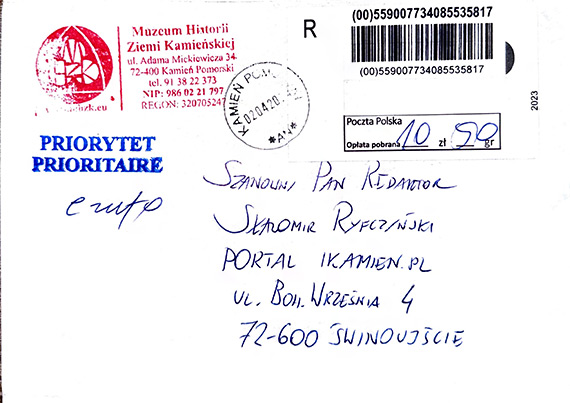 Muzeum Historii
Ziemi Kamieńskiej
ul. Adama Mickiewicza 34
72-400 Kamień Pomorski
tel. 91 38 22 373
NIP: 986 02 21 797
REGON: 320705247
PRIORYTET
PRIORITAIRE
R
(00)559007734085535817
(00)559007734085535817
2023
KAMIEŃ POMO
*AN*
Poczta Polska
Opłata pobrana 10 zł 90 gr
SZANOWNY PAN REDAKTOR
SŁAWOMIR RYFCZYŃSKI
PORTAL IKAMIEN.PL
UL. BOH. WRZEŚNIA 4
72-600 ŚWINOUJŚCIE